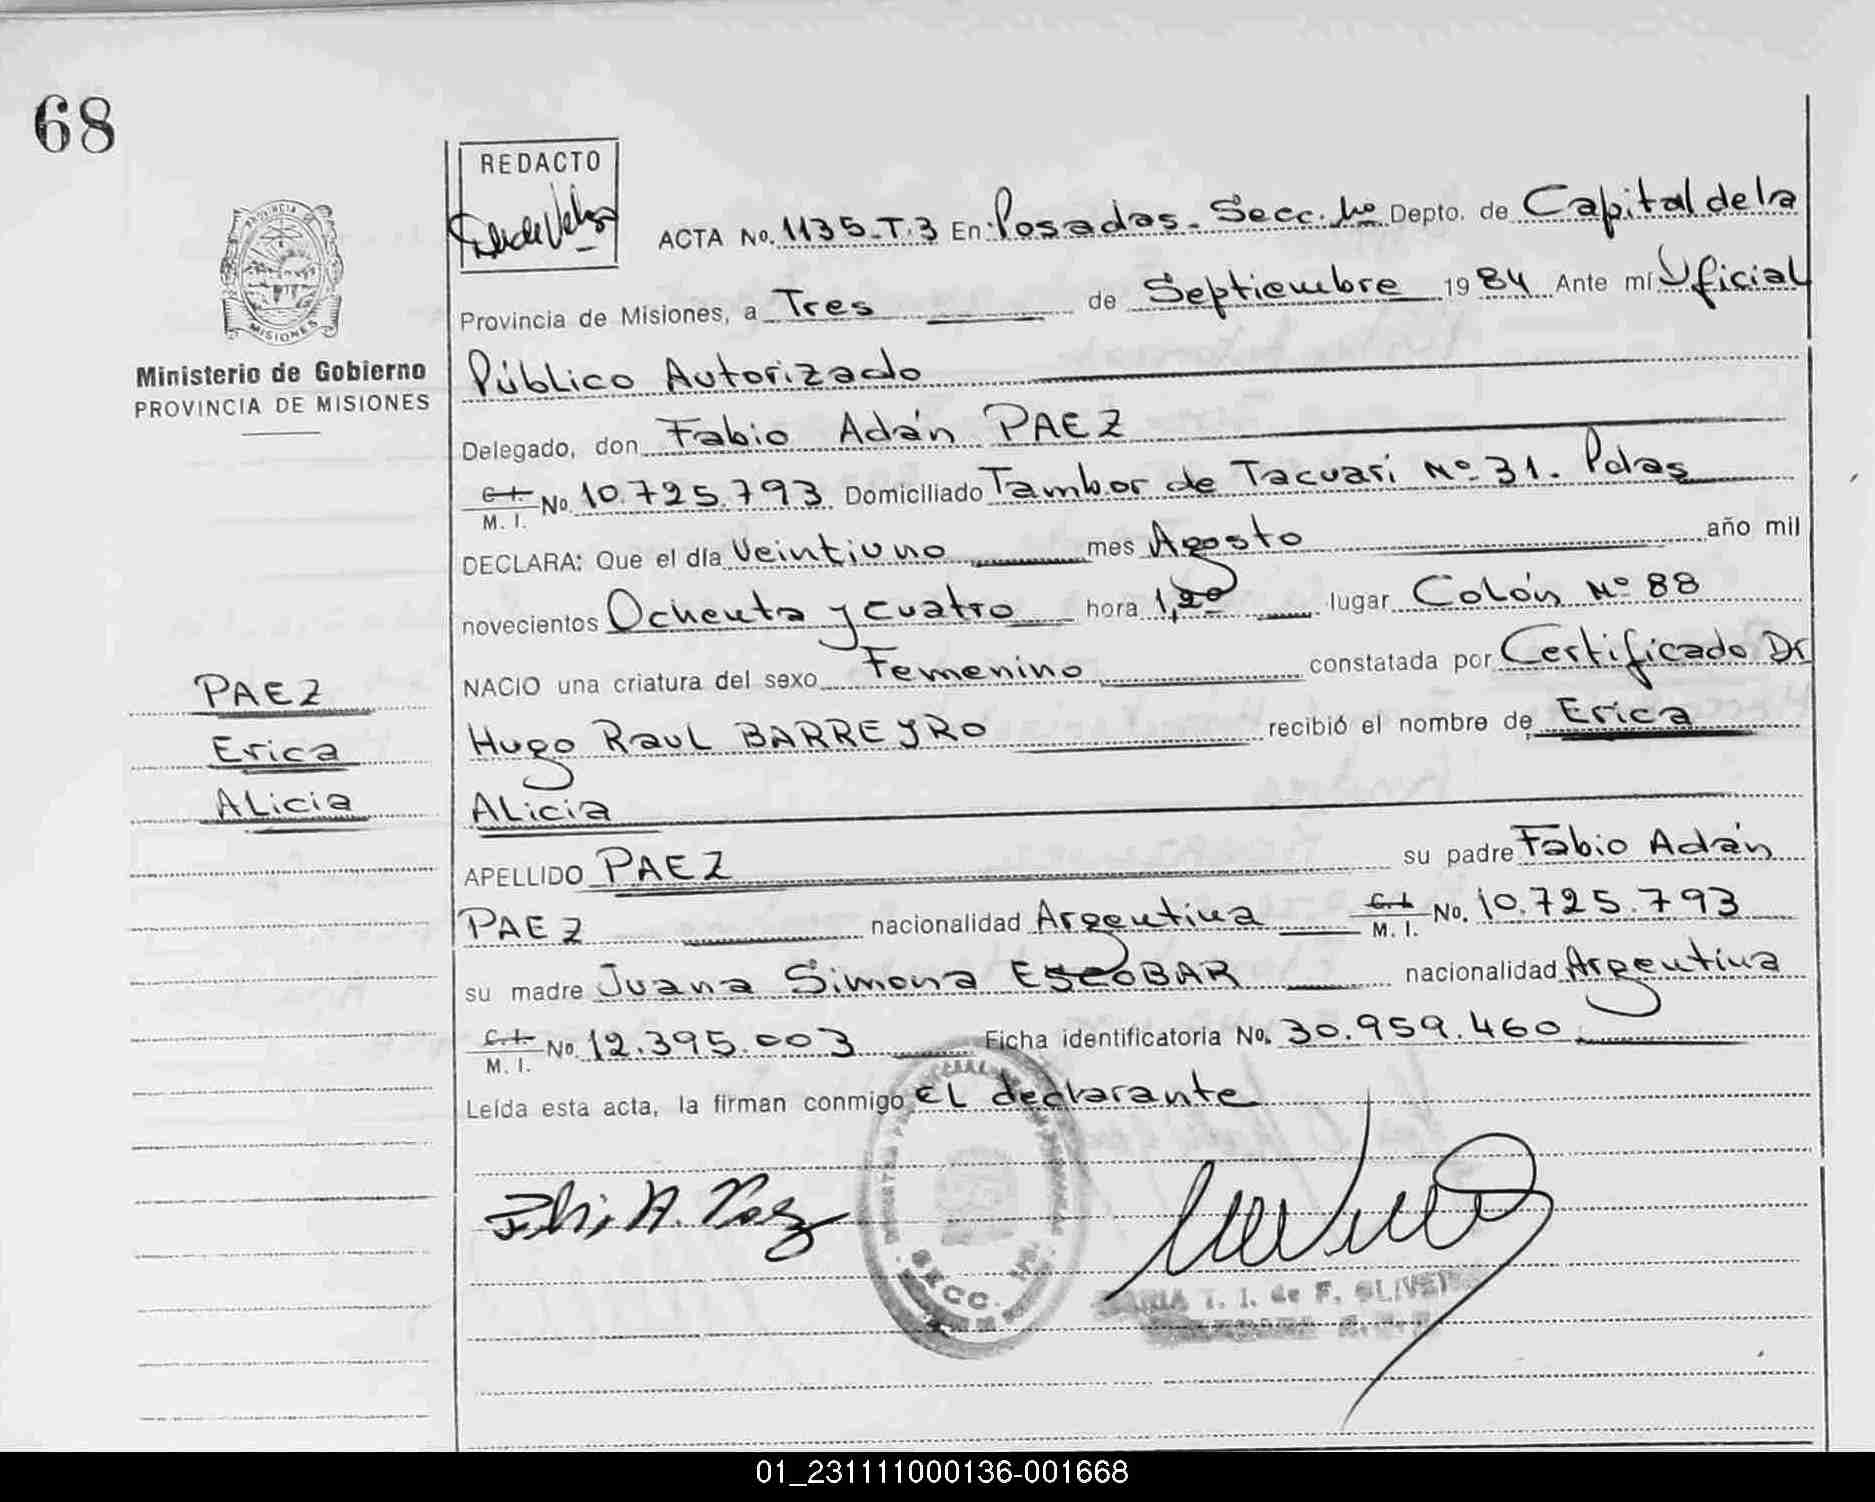 68
REDACTO
ACTA No. 1135-T.3 En: Posadas - Secc. 1º Depto. de Capital de la
Provincia de Misiones, a Tres de Septiembre 1984 Ante mí Oficial
Ministerio de Gobierno
PROVINCIA DE MISIONES
Público Autorizado
Delegado, don Fabio Adán PAEZ
C. I. M. I. No. 10.725.793 Domiciliado Tambor de Tacuarí Nº 31. Pdas
DECLARA: Que el día Veintiuno mes Agosto año mil
novecientos Ochenta y cuatro hora 1,20 lugar Colón Nº 88
NACIO una criatura del sexo Femenino constatada por Certificado Dr
Hugo Raul BARREYRO recibió el nombre de Erica
ALicia
PAEZ
Erica
ALicia
APELLIDO PAEZ su padre Fabio Adán
PAEZ nacionalidad Argentina C. I. M. I. No. 10.725.793
su madre Juana Simona ESCOBAR nacionalidad Argentina
C. I. M. I. No. 12.395.003 Ficha identificatoria No. 30.959.460
Leída esta acta, la firman conmigo EL declarante
SECC. 1ª
MARIA T. I. de F. OLIVEIRA
PROVINCIA DE
MISIONES
01_231111000136-001668